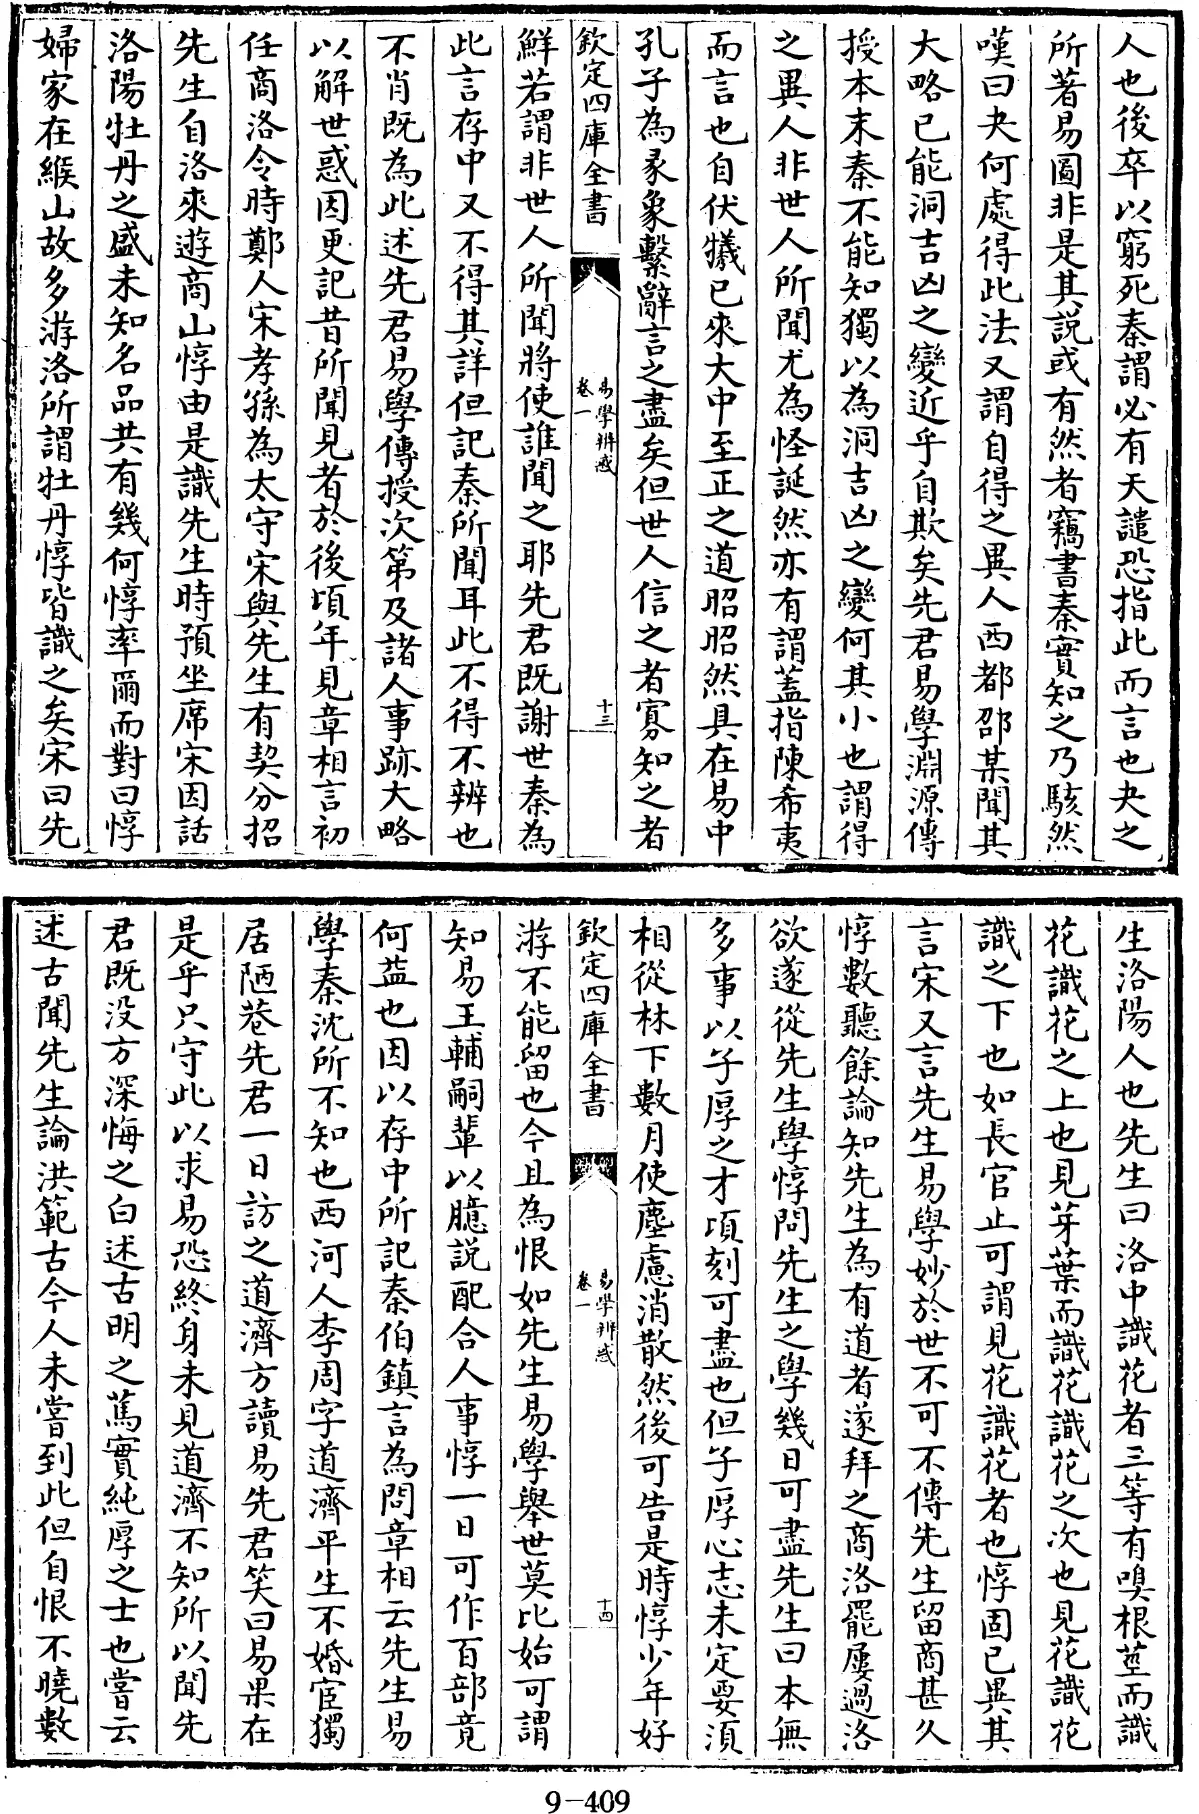 人也後卒以窮死秦謂必有天譴恐指此而言也夬之
所著易圖非是其説或有然者竊書秦實知之乃駭然
嘆曰夬何處得此法又謂自得之異人西都邵某聞其
大略已能洞吉凶之變近乎自欺矣先君易學淵源傳
授本末秦不能知獨以為洞吉凶之變何其小也謂得
之異人非世人所聞尤為怪誕然亦有謂蓋指陳希夷
而言也自伏犧已來大中至正之道昭昭然具在易中
孔子為彖象繫辭言之盡矣但世人信之者寡知之者
欽定四庫全書
易學辨惑
卷一
十三
鮮若謂非世人所聞將使誰聞之耶先君既謝世秦為
此言存中又不得其詳但記秦所聞耳此不得不辨也
不肖既為此述先君易學傳授次第及諸人事跡大略
以解世惑因更記昔所聞見者於後頃年見章相言初
任商洛令時鄭人宋孝孫為太守宋與先生有契分招
先生自洛來遊商山惇由是識先生時預坐席宋因話
洛陽牡丹之盛未知名品共有幾何惇率爾而對曰惇
婦家在緱山故多游洛所謂牡丹惇皆識之矣宋曰先
生洛陽人也先生曰洛中識花者三等有嗅根荎而識
花識花之上也見芽葉而識花識花之次也見花識花
識之下也如長官止可謂見花識花者也惇固已異其
言宋又言先生易學妙於世不可不傳先生留商甚久
惇數聽餘論知先生為有道者遂拜之商洛罷屢過洛
欲遂從先生學惇問先生之學幾日可盡先生曰本無
多事以子厚之才頃刻可盡也但子厚心志未定要須
相從林下數月使塵慮消散然後可告是時惇少年好
欽定四庫全書
易學辨惑
卷一
十四
游不能留也今且為恨如先生易學舉世莫比始可謂
知易王輔嗣輩以臆説配合人事惇一日可作百部竟
何益也因以存中所記秦伯鎮言為問章相云先生易
學秦沈所不知也西河人李周字道濟平生不婚宦獨
居陋巷先君一日訪之道濟方讀易先君笑曰易果在
是乎只守此以求易恐終身未見道濟不知所以聞先
君既没方深悔之白述古明之篤實純厚之士也嘗云
述古聞先生論洪範古今人未嘗到此但自恨不曉數
9-409